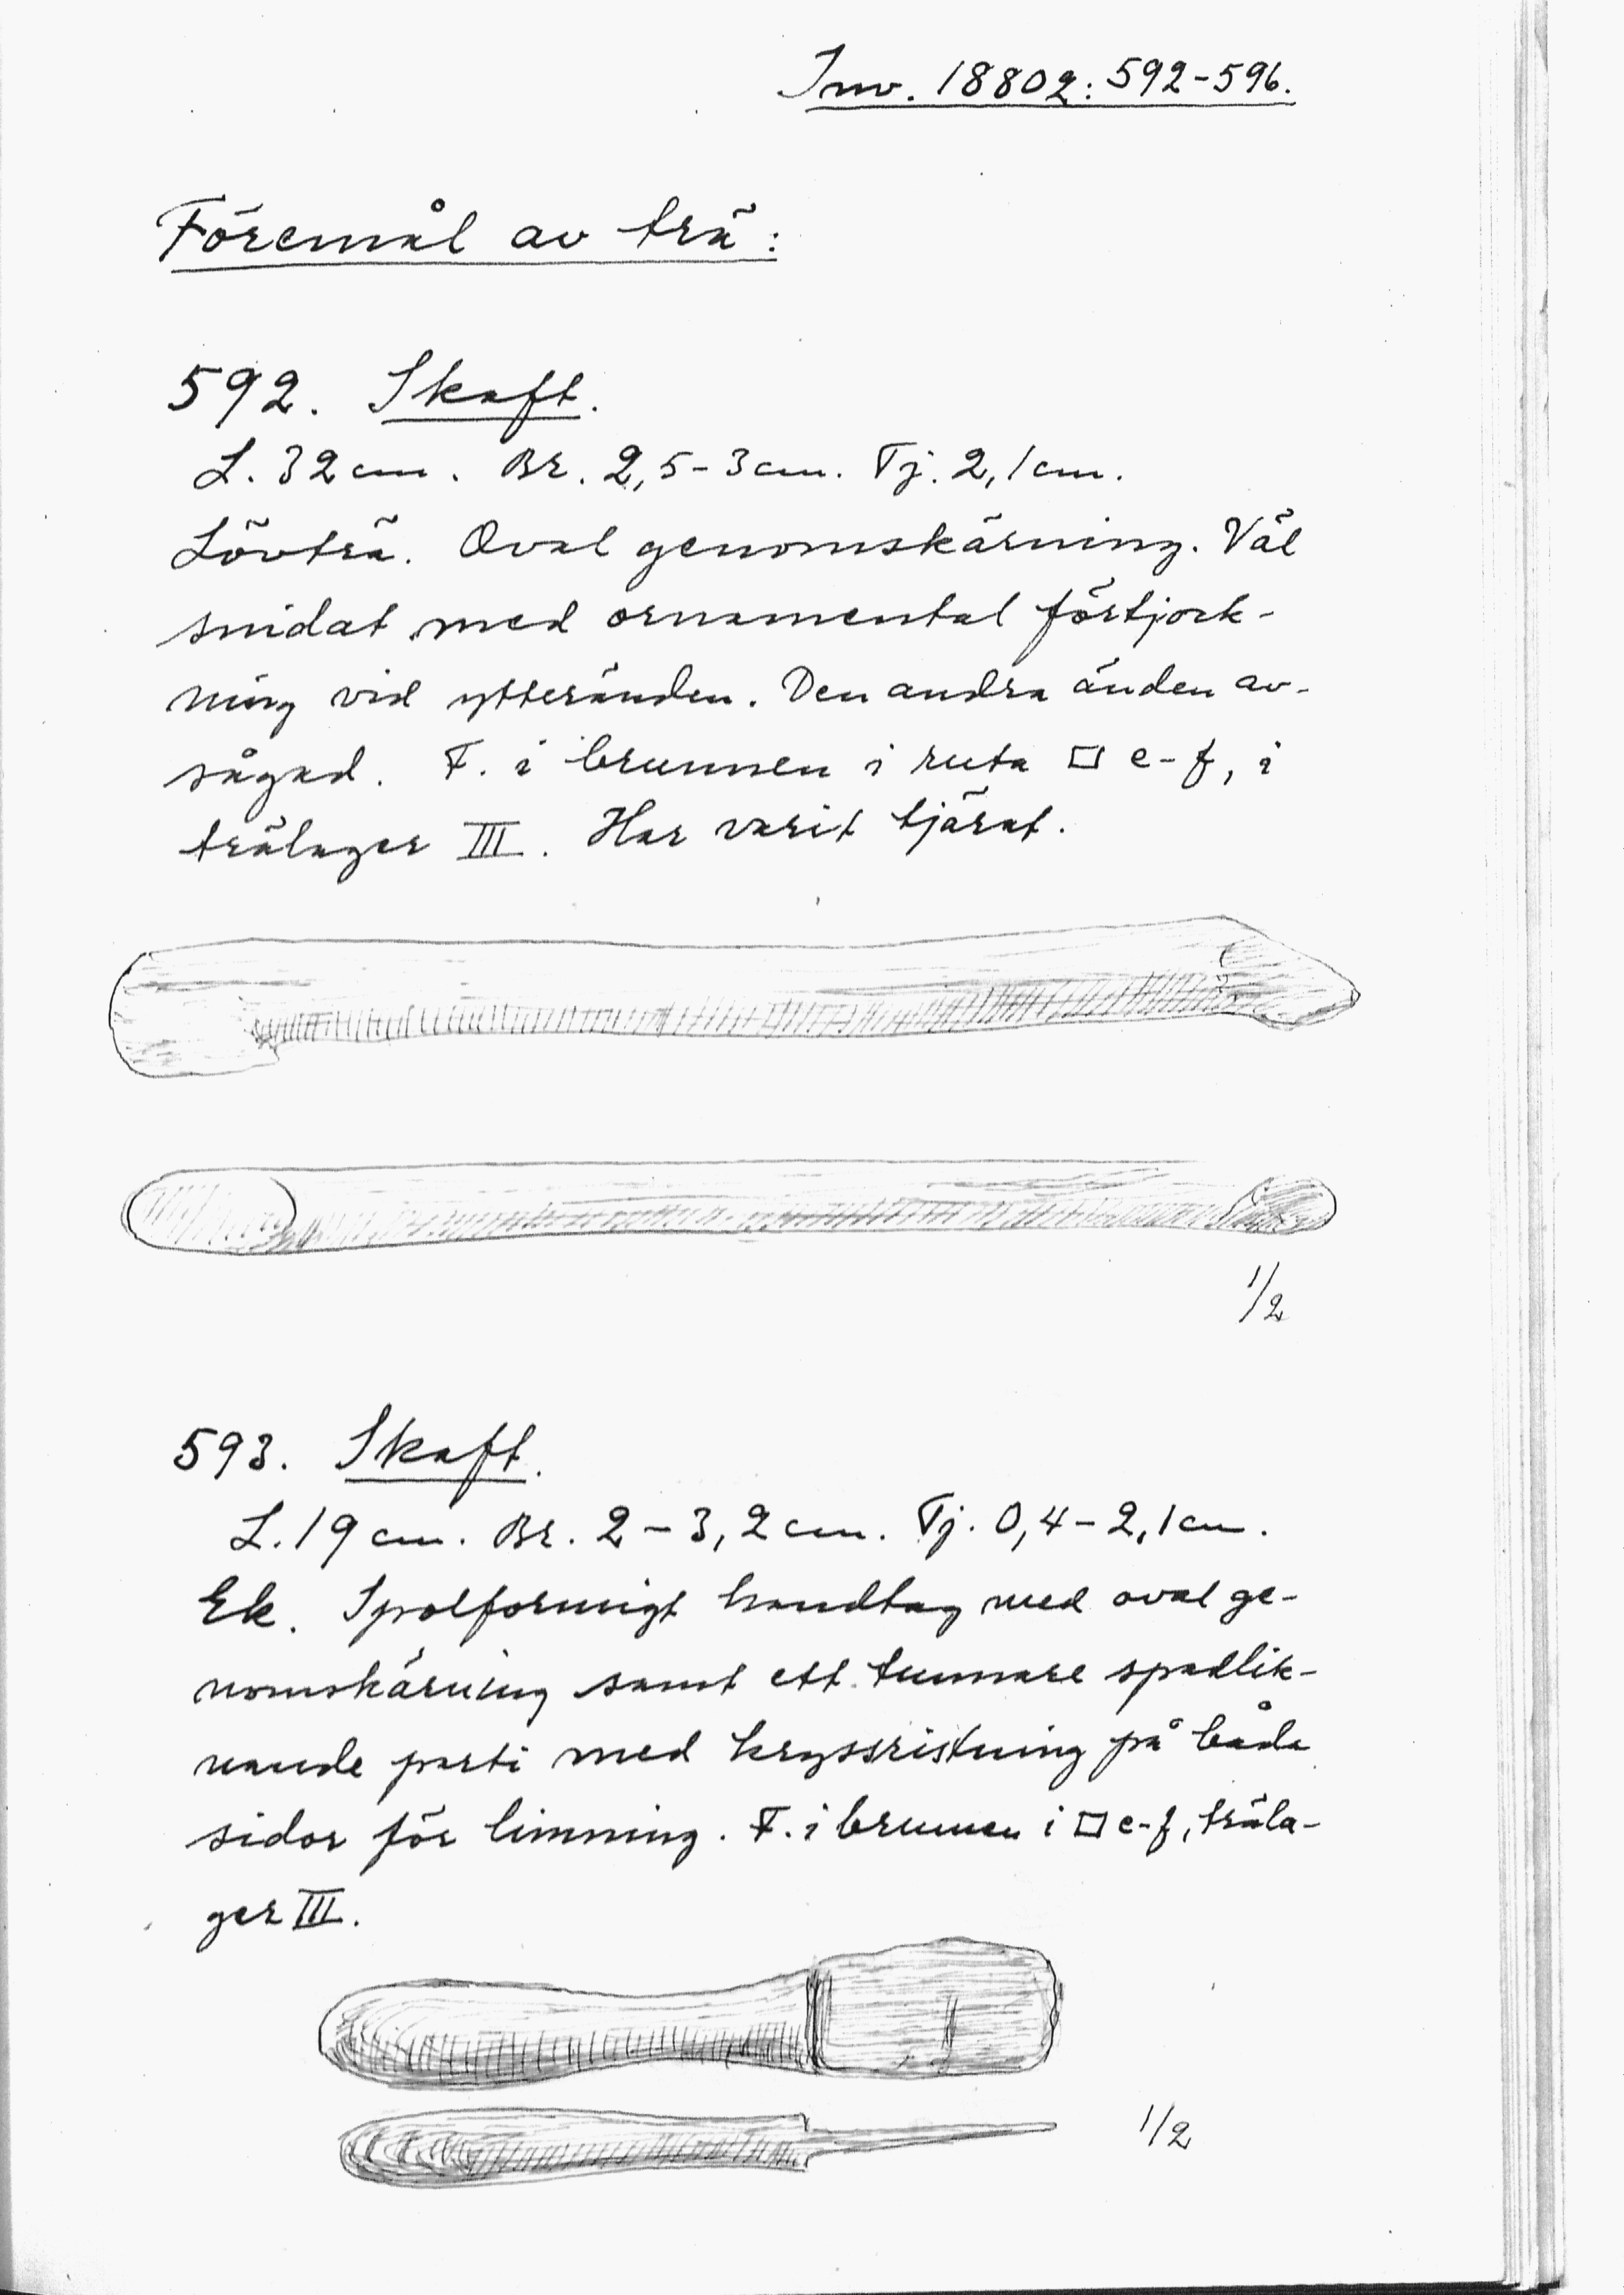 Inv. 18802: 592-596.
Föremål av trä:
592. Skaft.
L. 32 cm. Br. 2,5-3 cm. Tj. 2,1 cm.
Lövträ. Oval genomskärning. Väl
snidat med ornamental förtjock-
ning vid ytteränden. Den andra änden av-
sågad. F. i brunnen i ruta □ e-f, i
trälager III. Har varit tjärat.
1/2
593. Skaft.
L. 19 cm. Br. 2-3,2 cm. Tj. 0,4-2,1 cm.
Ek. Spolformigt handtag med oval ge-
nomskärning samt ett tunnare spadlik-
nande parti med kryssristning på båda
sidor för limning. F. i brunnen i □ e-f, träla-
ger III.
1/2